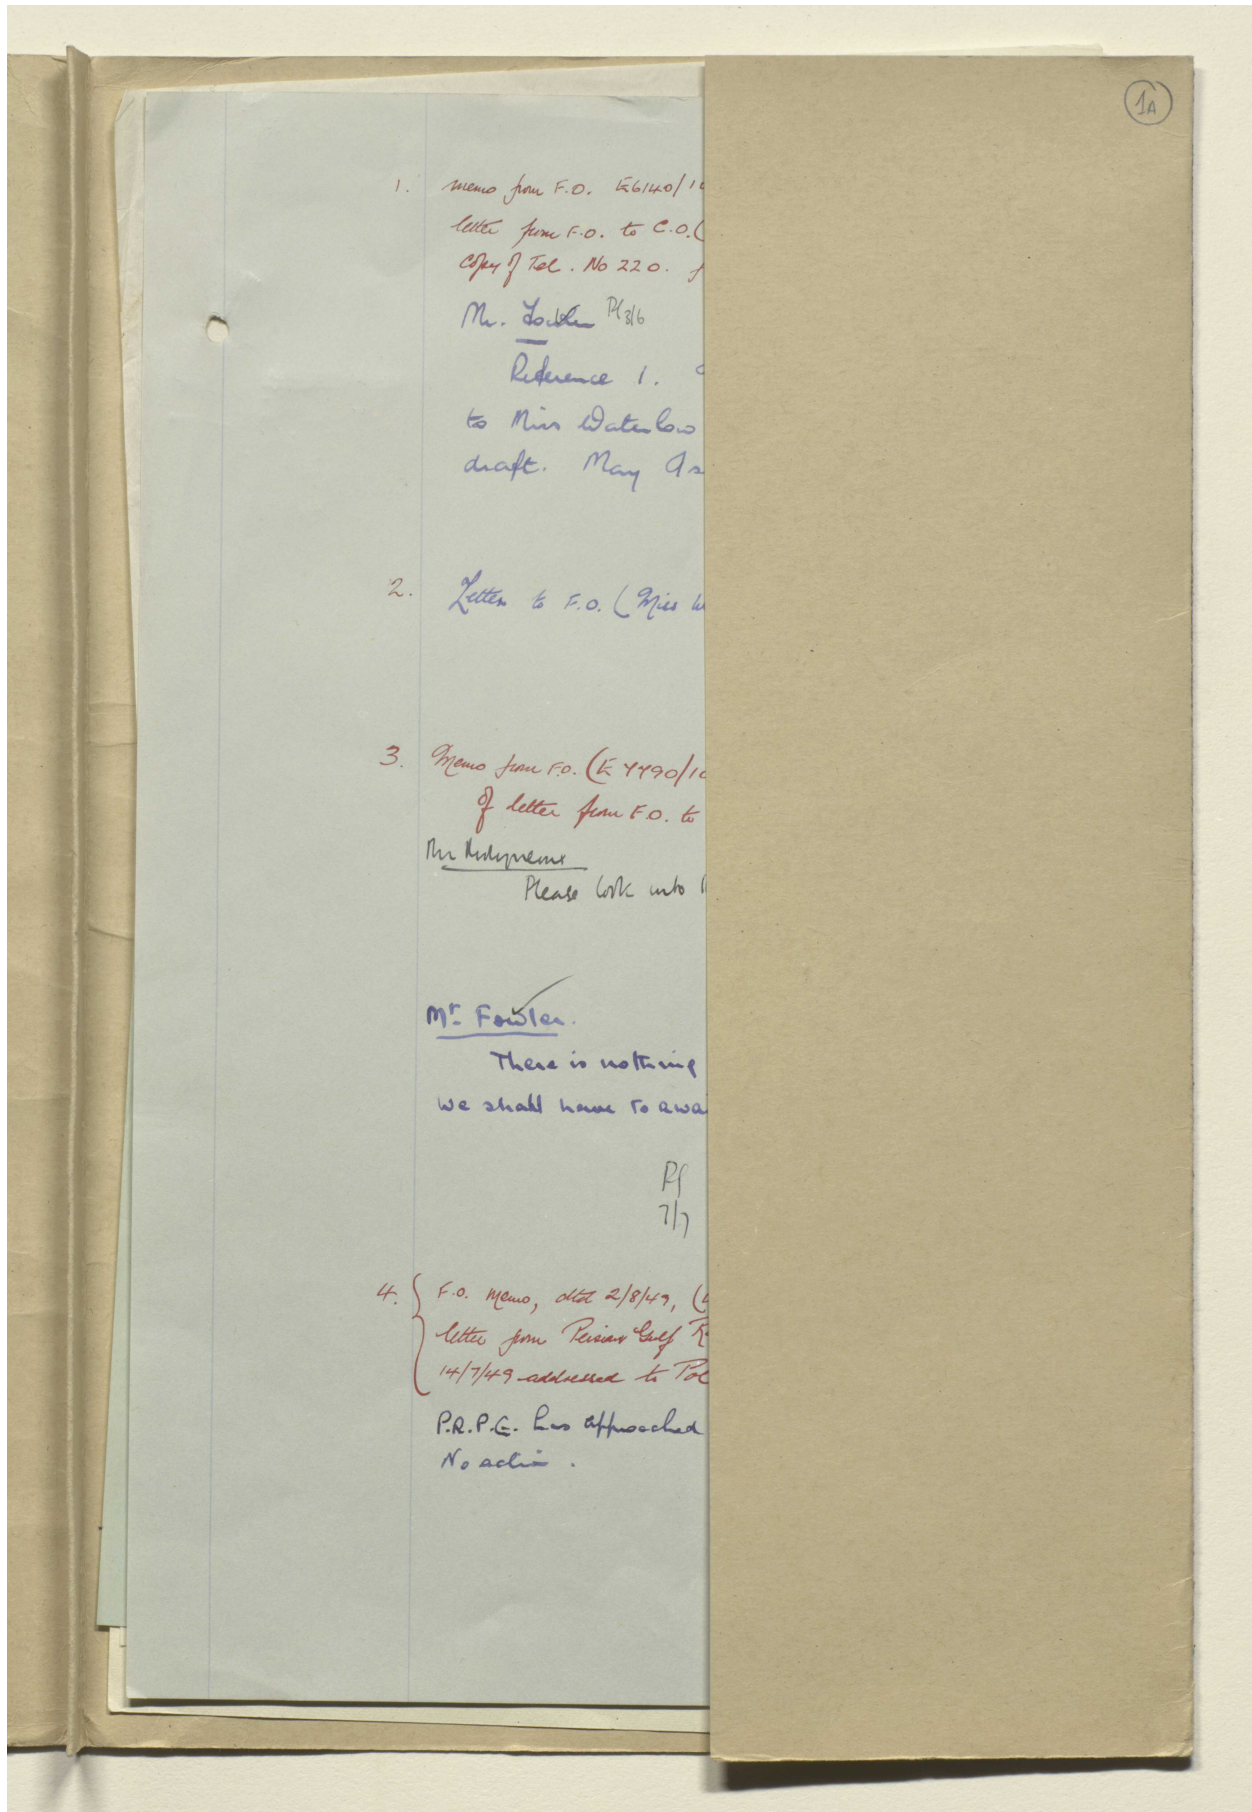 1A
1. memo from F.O. E6140/10
letter from F.O. to C.O.(
copy of Tel. No 220. f
Mr. Fowler Pf 3/6
Reference 1.
to Miss Waterlow
draft. May
2. Letter to F.O. (Miss W
3. Memo from F.O. (E7790/10
of letter from F.O. to
Mr Molyneux
Please look into
Mr. Fowler.
There is nothing
We shall have to awa
Pf
7/7
4. F.O. Memo, dtd 2/8/49, (
letter from Persian Gulf R
14/7/49 addressed to Pol
P.R.P.G. has approached
No action.